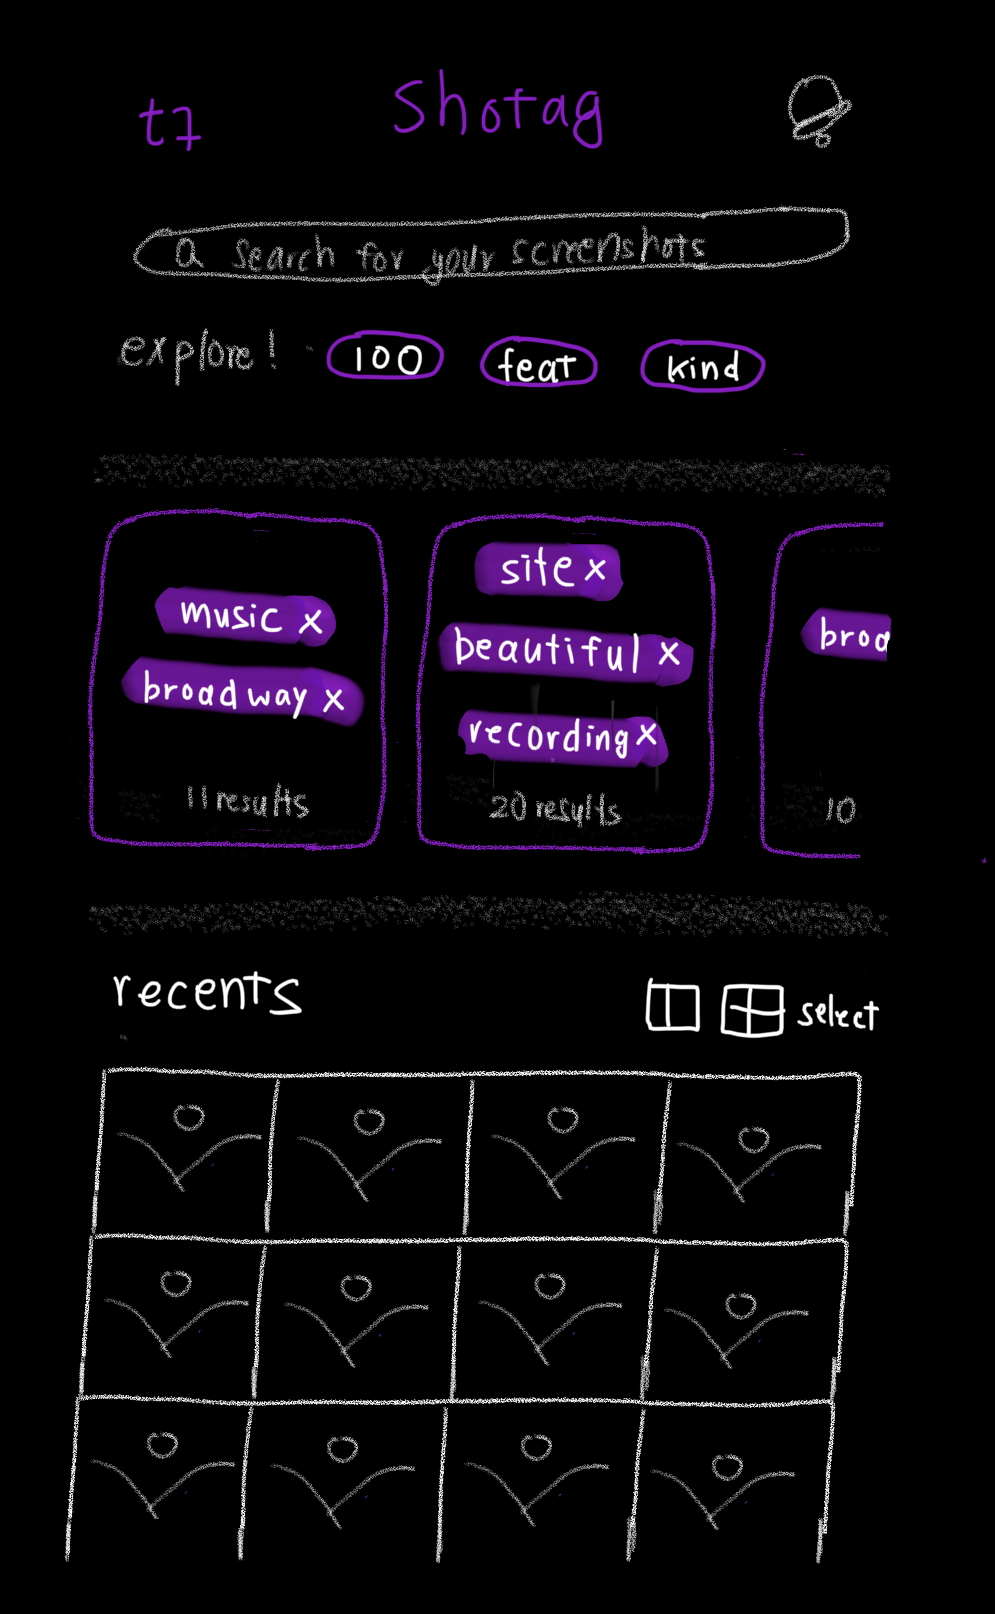 t7 Shotag
Q search for your screenshots
explore! 100 feat kind
music x
broadway x
11 results
site x
beautiful x
recording x
20 results
broa
10
recents select